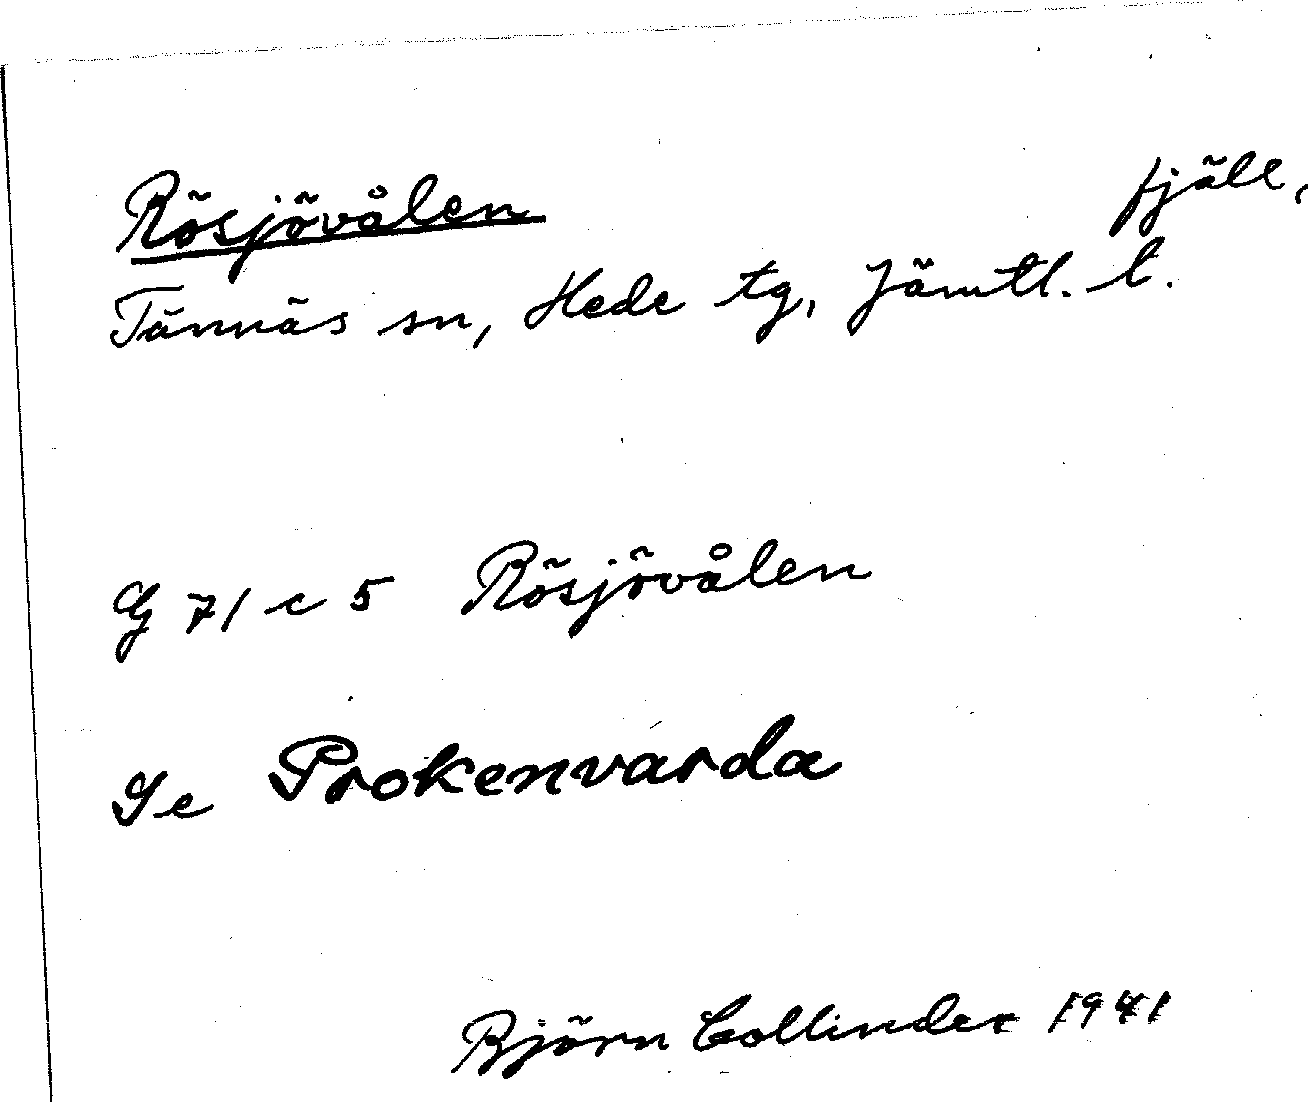 Rösjövålen fjäll,
Tännäs sn, Hede tg, Jämtl. l.
G 71 c 5 Rösjövålen
Se Prokenvarda
Björn Collinder 1941